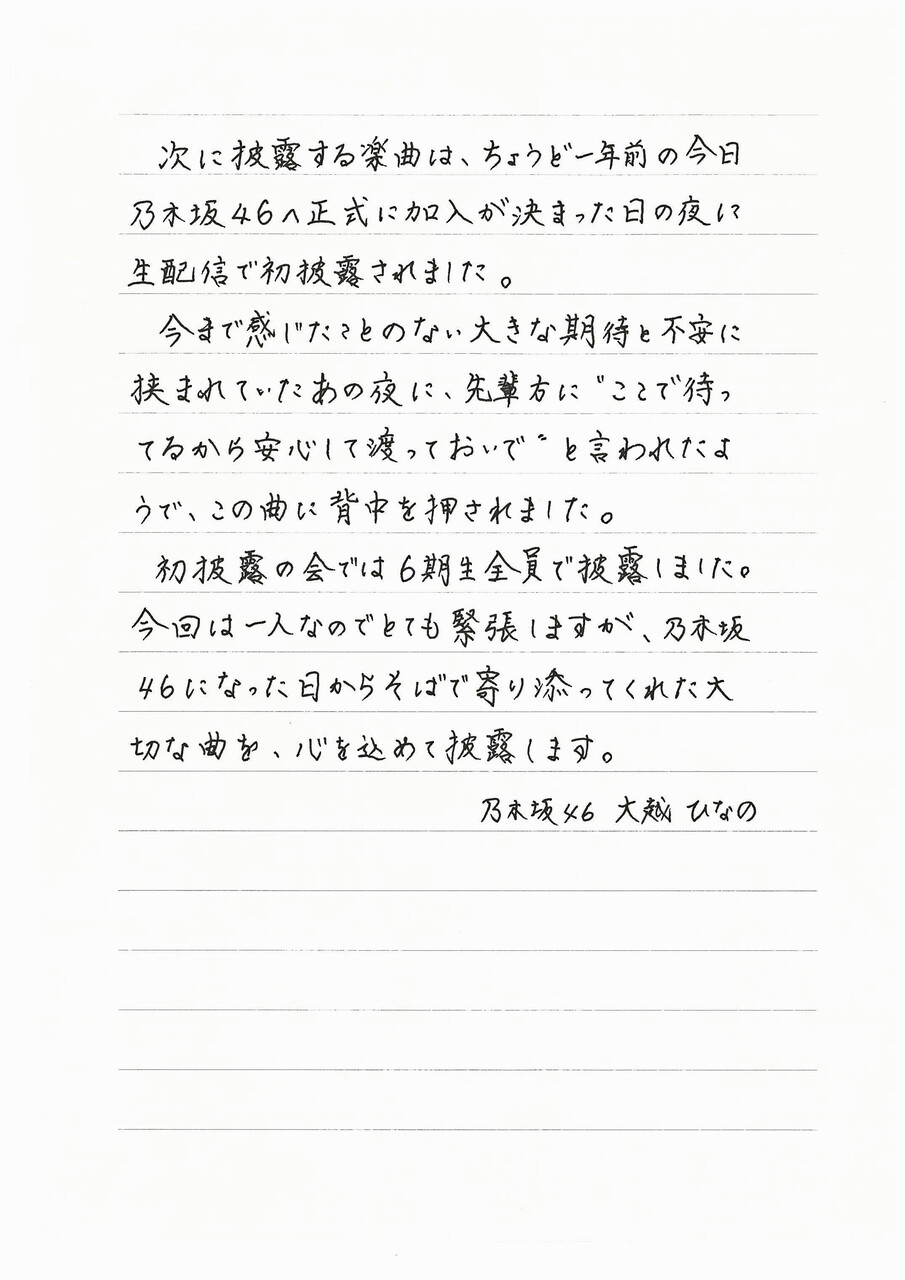 次に披露する楽曲は、ちょうど一年前の今日
乃木坂46へ正式に加入が決まった日の夜に
生配信で初披露されました。
今まで感じたことのない大きな期待と不安に
挟まれていたあの夜に、先輩方に〝ここで待っ
てるから安心して渡っておいで〟と言われたよ
うで、この曲に背中を押されました。
初披露の会では6期生全員で披露しました。
今回は一人なのでとても緊張しますが、乃木坂
46になった日からそばで寄り添ってくれた大
切な曲を、心を込めて披露します。
乃木坂46 大越 ひなの